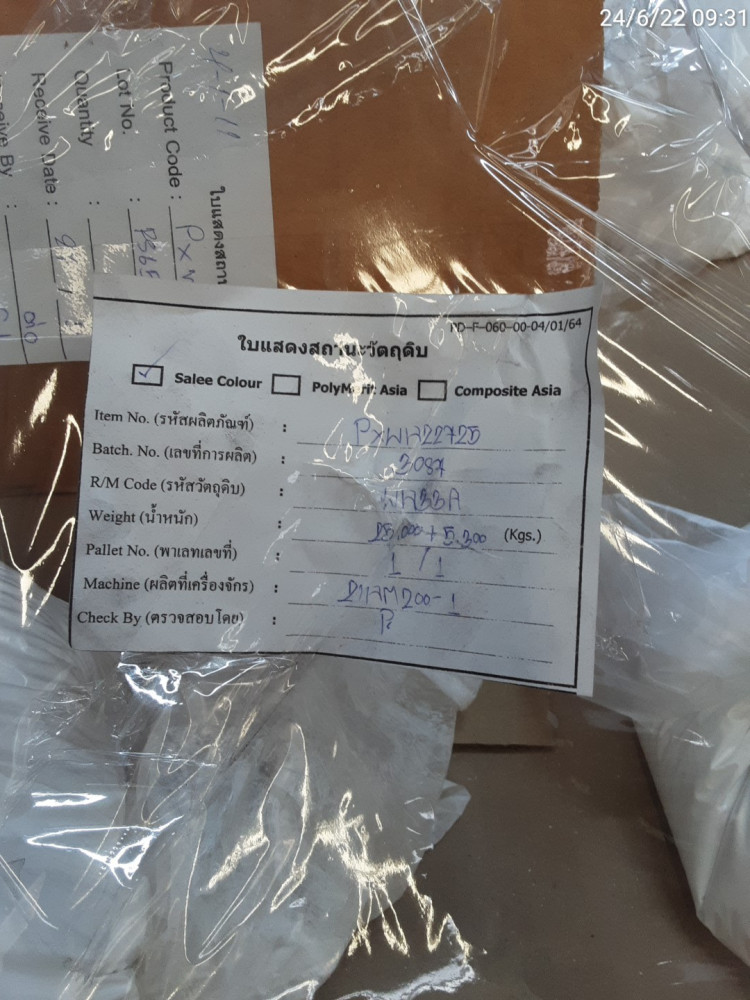 24/6/22 09:31
ใบแสดงสถาน
Product Code : PXW
Lot No. :
Quantity :
Receive Date :
ceive By :
PD-F-060-00-04/01/64
ใบแสดงสถานะวัตถุดิบ
Salee Colour PolyMerit Asia Composite Asia
Item No. (รหัสผลิตภัณฑ์) : PXWH22725
Batch. No. (เลขที่การผลิต) : 3087
R/M Code (รหัสวัตถุดิบ) :
Weight (น้ำหนัก) : 25.000 + 5.300 (Kgs.)
Pallet No. (พาเลทเลขที่) : 1 / 1
Machine (ผลิตที่เครื่องจักร) :
Check By (ตรวจสอบโดย) :